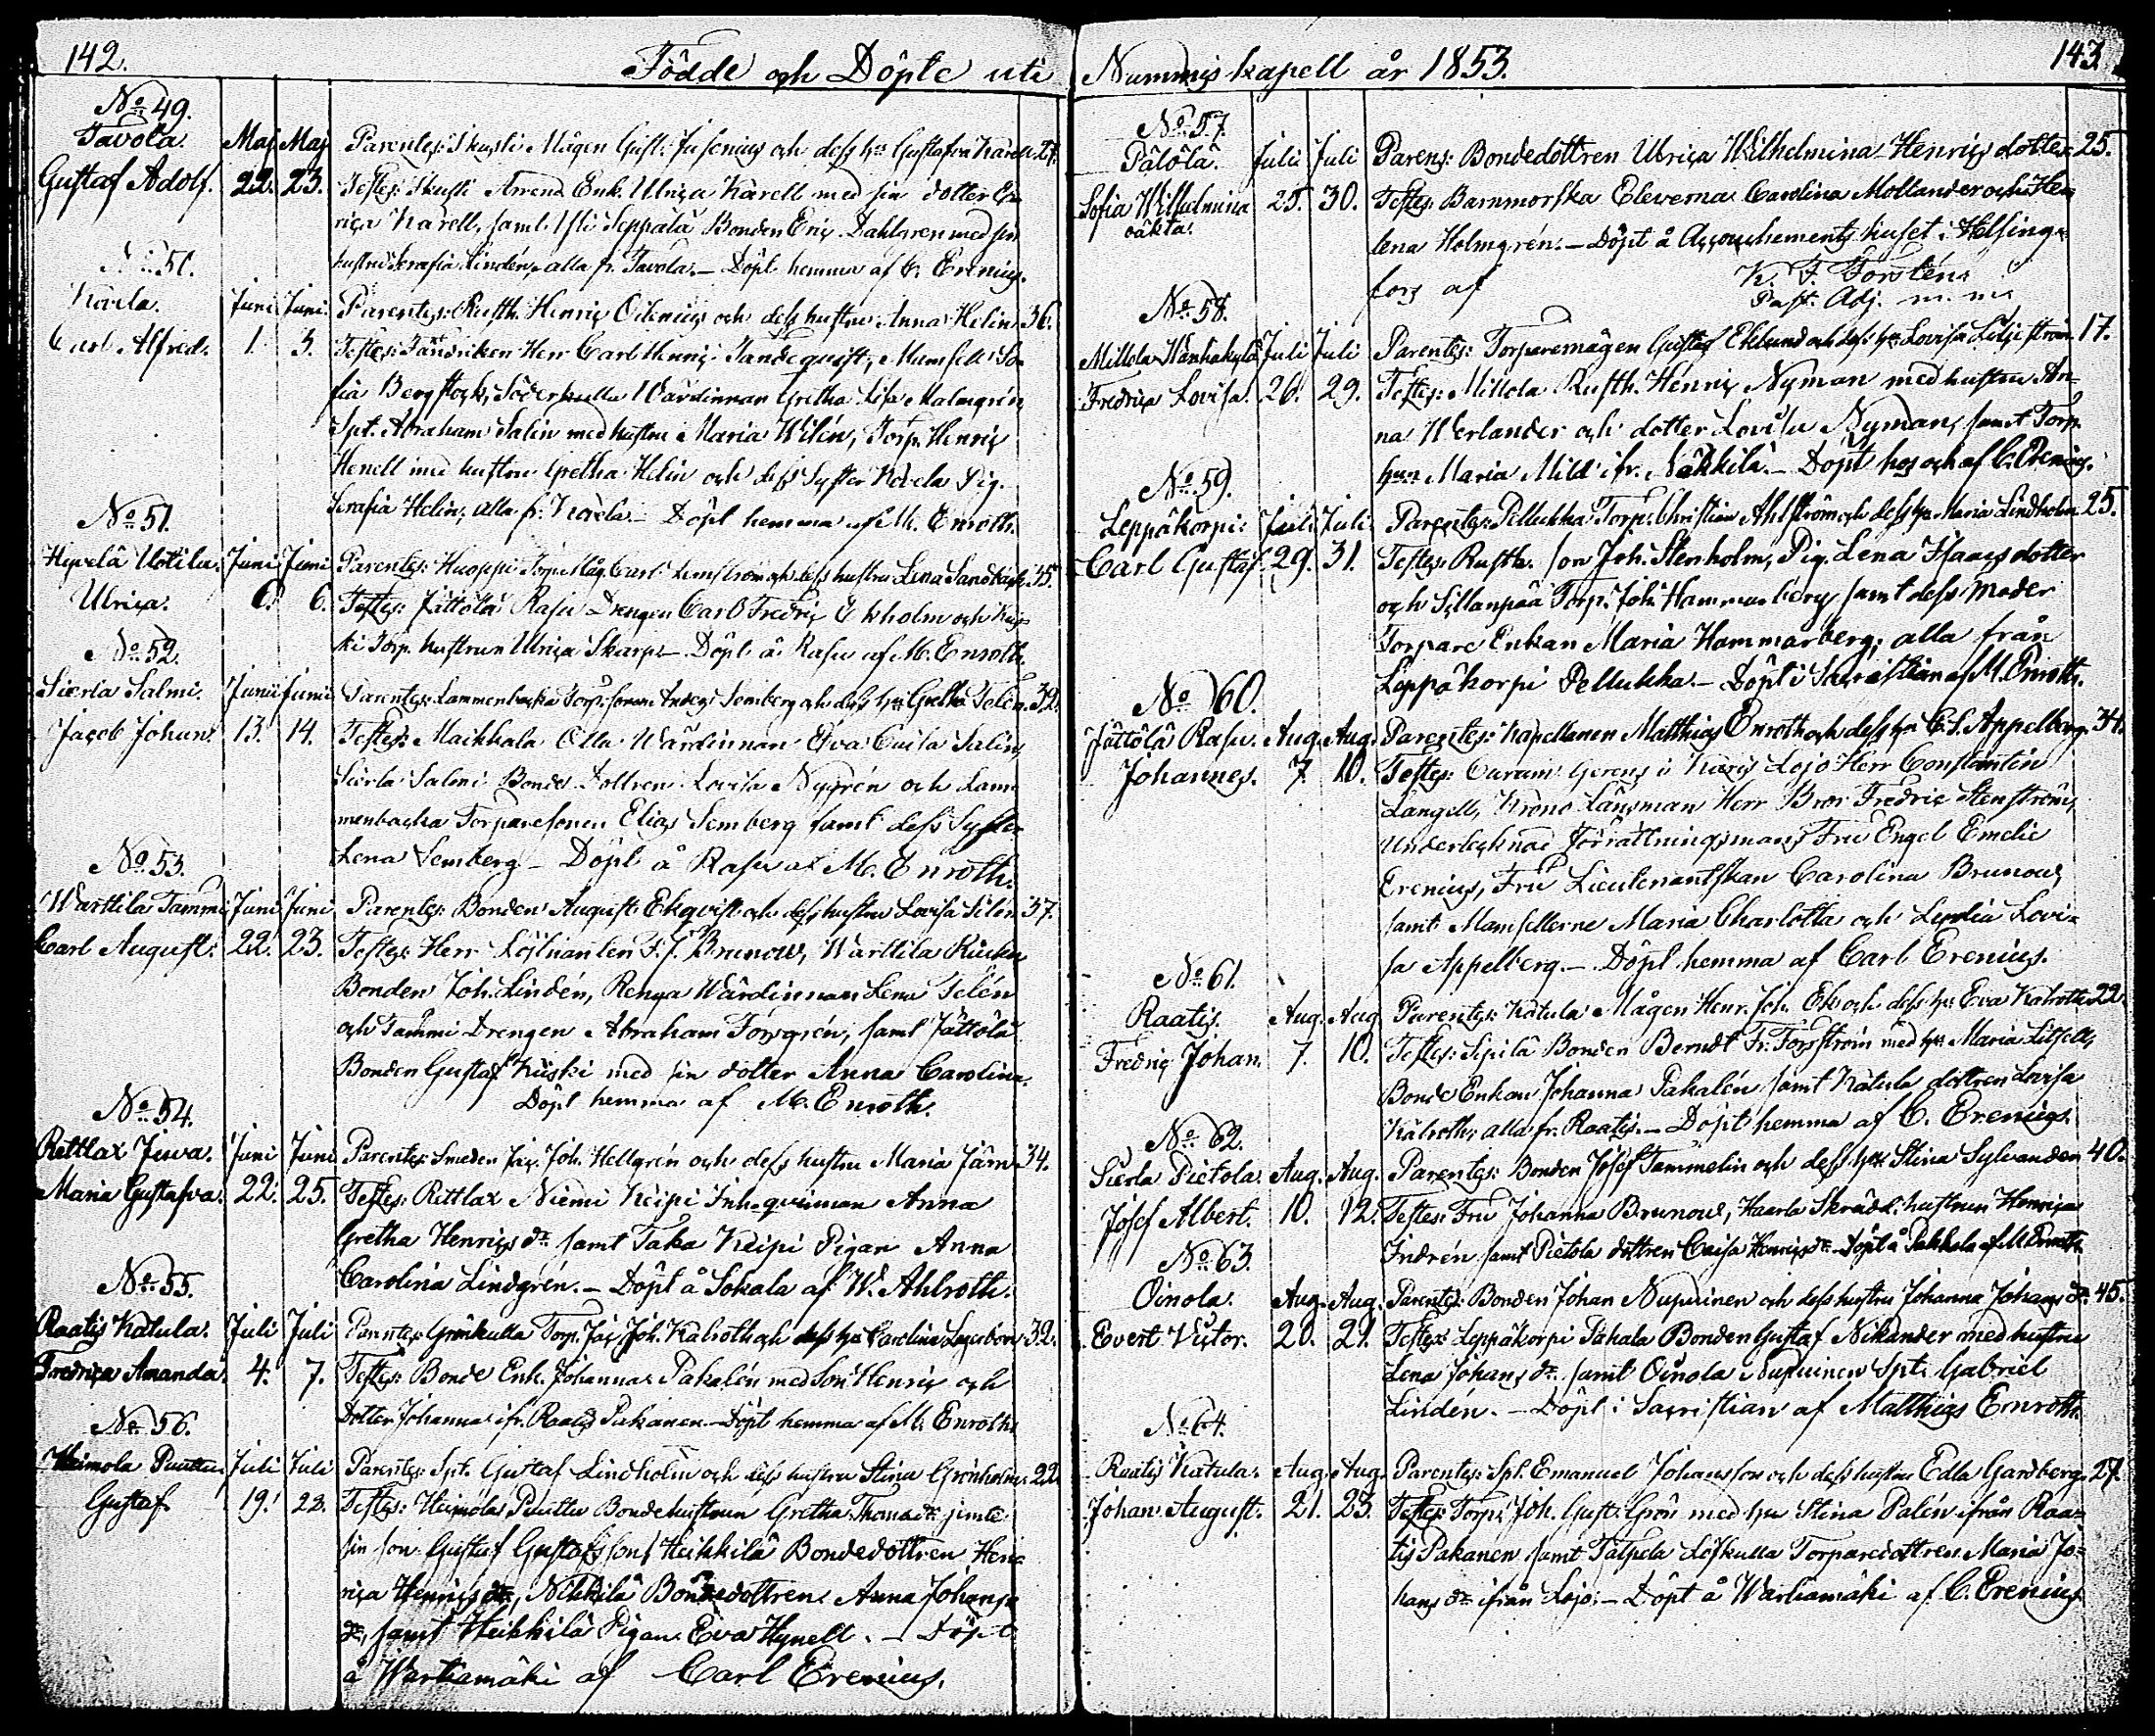 142.
Födde och Döpte uti
No 49.
Tavola. Maj Maj Parentes: Skusli Mågen Gust. Jusenius och dess hu Gustafva Karell 27.
Gustaf Adolf. 22. 23. Testes: Skusli Arrend. Enk. Ulrica Karell med sin dotter En
rica Karell, samt Isli Seppälä Bonden Eric Dahlgren med sin
hustru Serafia Lindén, alla fr. Tavola. – Döpt hemma af C. Erenius.
No 50.
Kovela. Juni Juni Parentes: Rusth. Henric Oilenius och dess hustru Anna Helin 36.
Carl Alfred. 1. 3. Testes: Fändriken Herr Carl Henric Tandequist, Mamsell So-
fia Bergstock, Söderkulla Wärdinnan Gretha Lisa Malmgrén
Spt. Abraham Salin med hustru Maria Wilén, Torp. Henric
Henell med hustru Gretha Helin och dess Syster Kovela Pig.
Serafia Helin, alla fr. Kovela. – Döpt hemma af M. Enroth.
No 51.
Hyvelä Uotila. Juni Juni Parentes: Huoppi Torp. Måg Carl Lemström och dess hustru Lena Sandbäck 35.
Ulrica. 6. 6. Testes: Jättölä Rasu Drengen Carl Fredric Ekholm och
ki Torp. hustrun Ulrica Skarp. – Döpt å Rasu af M. Enroth.
No 52.
Sierla Salmi. Junii Junii Parentes: Lammenbacka Torp. sonen Anders Semberg och dess hu Gretha Telén 32.
Jacob Johan. 13. 14. Testes: Maikkala Olla Wärdinnan Eva Caisa Salin,
Sierla Salmi Bonde Dottren Lovisa Nygrén och Lam-
menbacka Torparesonen Elias Semberg samt dess Syster
Lena Semberg – Döpt å Rasu af M. Enroth.
No 53.
Warttila Tammi Juni Juni Parentes: Bonden August Ekqvist och dess hustru Lovisa Silén 37.
Carl August. 22. 23. Testes: Herr Löjtnanten F. J. Brunow, Warttila
Bonden Joh. Lindén, Renga Wärdinnan Lena Telén
och Tammi Drengen Abraham Forsgrén, samt Jättölä
Bonden Gustaf Kuski med sin dotter Anna Carolina.
Döpt hemma af M. Enroth.
No 54.
Rettlax Juva. Juni Juni Parentes: Smeden Jac. Joh. Hellgrén och dess hustru Maria Järn 34.
Maria Gustafva. 22. 25. Testes: Rittlax Niemi Keipi Inh. qvinnan Anna
Gretha Henrics dr samt Taka Keipi Pigan Anna
Carolina Lindgrén. – Döpt å Sokala af W. Ahlroth.
No 55.
Raatis Katula. Juli Juli Parentes: Grönkulla Torp. Jac. Joh. Kalroth och dess hu Carolina Lagerbom 32.
Fredrica Amanda. 4. 7. Testes: Bonde Enk. Johanna Pakalén med Son Henric och
Dotter Johanna ifr. Raatis Pakanen. – Döpt hemma af M. Enroth.
No 56.
Heimola Puuttu Juli Juli Parentes: Spt. Gustaf Lindholm och dess hustru Stina Grönholm 22
Gustaf. 19. 23. Testes: Heimola Puuttu Bondehustrun Gretha Thomas dr jemte
sin son Gustaf Gustafsson, Heikkilä Bondedottren Hen-
rica Henrics dr, Nikkilä Bondedottren Anna Johans
dr, samt Heikkilä Pigan Eva Hynell. – Döpt
å Warkamäki af Carl Erenius.
Nummis kapell år 1853.
143.
No 57.
Pälölä. Juli Juli Parens: Bondedottren Ulrica Wilhelmina Henrics dotter 25.
Sofia Wilhelmina 25. 30. Testes: Barnmorska Eleverna Carolina Mollander och He-
oäkta. lena Holmgrén. – Döpt å Accouchements huset i Helsing-
fors af K. F. Forstén.
Past. Adj. m. m.
No 58.
Millola Wanhakylä Juli Juli Parentes: Torparemågen Gustaf Eklund och dess hu Lovisa Liljeström 17.
Fredrica Lovisa. 26. 29. Testes: Millola Rusth. Henric Nyman med hustru An-
na Werlander och dotter Lovisa Nyman, samt Torp.
hun Maria Mild ifr. Näkkilä. – Döpt hos och af C. Erenius.
No 59.
Leppäkorpi. Juli Juli Parentes: Pellukka Torp. Christian Ahlström och dess hu Maria Lindholm 25.
Carl Gustaf. 29. 31. Testes: Rusth. son Joh. Stenholm, Pig. Lena Isaacs dotter
och Sillanpää Torp. Joh. Hammarberg samt dess Moder
Torpare Enkan Maria Hammarberg; alla från
Leppäkorpi Pellukka. – Döpt i Sacristian af M. Enroth.
No 60.
Jättölä Rasu. Aug. Aug. Parentes: Kapellanen Matthias Enroth och dess hu C. S. Appelberg 34.
Johannes. 7. 10. Testes: Curam Gerens i Karis Lojo Herr Constantin
Langell, Krono Länsman Herr Bror Fredric Stenström,
Undertecknad Förrättningsmans Fru Engel Emelie
Erenius, Fru Lieutenantskan Carolina Brunow,
samt Mamsellerne Maria Charlotta och Lydia Lovi-
sa Appelberg. – Döpt hemma af Carl Erenius.
No 61.
Raatis. Aug. Aug. Parentes: Katula Mågen Henr. Joh. Ek och dess hu Eva Kalroth 22
Fredric Johan. 7. 10. Testes: Sepilä Bonden Berndt Fr. Forsström med hu Maria Litzell,
Bonde Enkan Johanna Pakalén samt Katula dottren Lovisa
Kalroth, alla fr. Raatis. – Döpt hemma af C. Erenius.
No 62.
Sierla Pietola. Aug. Aug. Parentes: Bonden Josef Tammelin och dess hu Stina Sylvander 40.
Josef Albert. 10. 12. Testes: Fru Johanna Brunow, Haarla Skrädd. hustrun Henrica
Indrén samt Pietola dottren Caisa Henrics dr. Döpt å Pakkala af M. Enroth.
No 63.
Oinola. Aug. Aug. Parentes: Bonden Johan Nupuinen och dess hustru Johanna Johans dr. 45.
Evert Victor. 20. 21. Testes: Leppäkorpi Pähala Bonden Gustaf Nikander med hustru
Lena Johans dr. samt Oinola Nupuinen Spt. Gabriel
Lindén. – Döpt i Sacristian af Matthias Enroth.
No 64.
Raatis Katula. Aug. Aug. Parentes: Spt. Emanuel Johansson och dess hustru Edla Gardberg 27.
Johan August. 21. 23. Testes: Torp. Joh. Gust. Grön med hu Stina Palén ifrån Raa-
tis Pakanen samt Talpela Löfkulla Torparedottren Maria Jo-
hans dr ifrån Lojo. – Döpt å Warkamäki af C. Erenius.